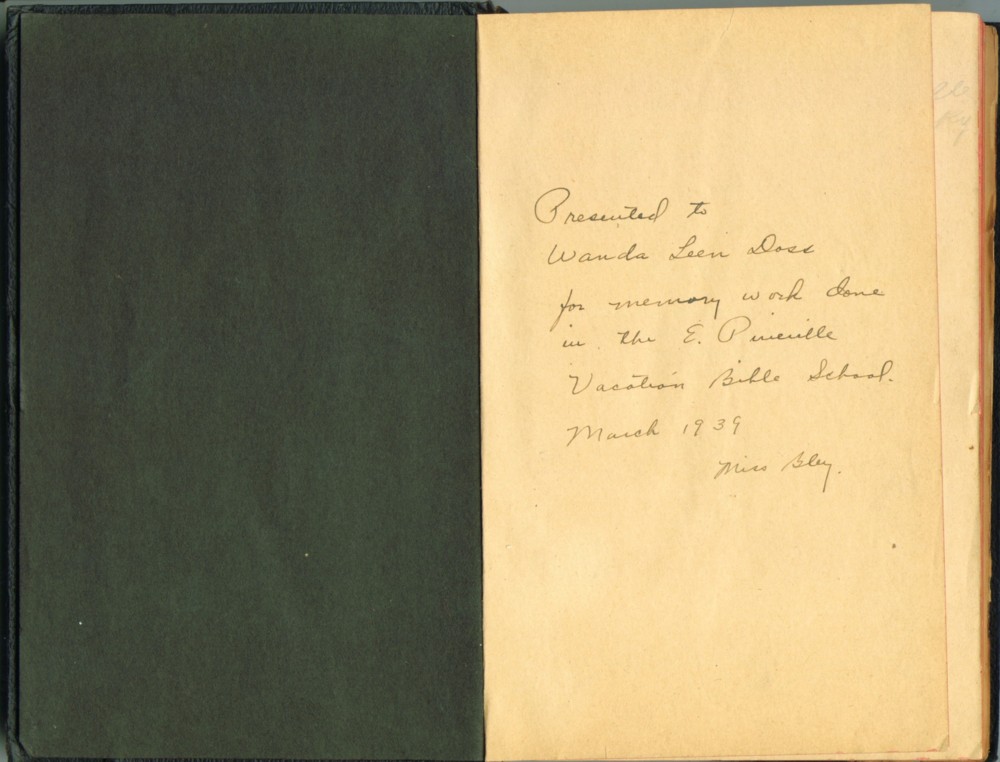 Presented to
Wanda Leen Doss
for memory work done
in the E. Pineville
Vacation Bible School.
March 1939
Miss Bley.